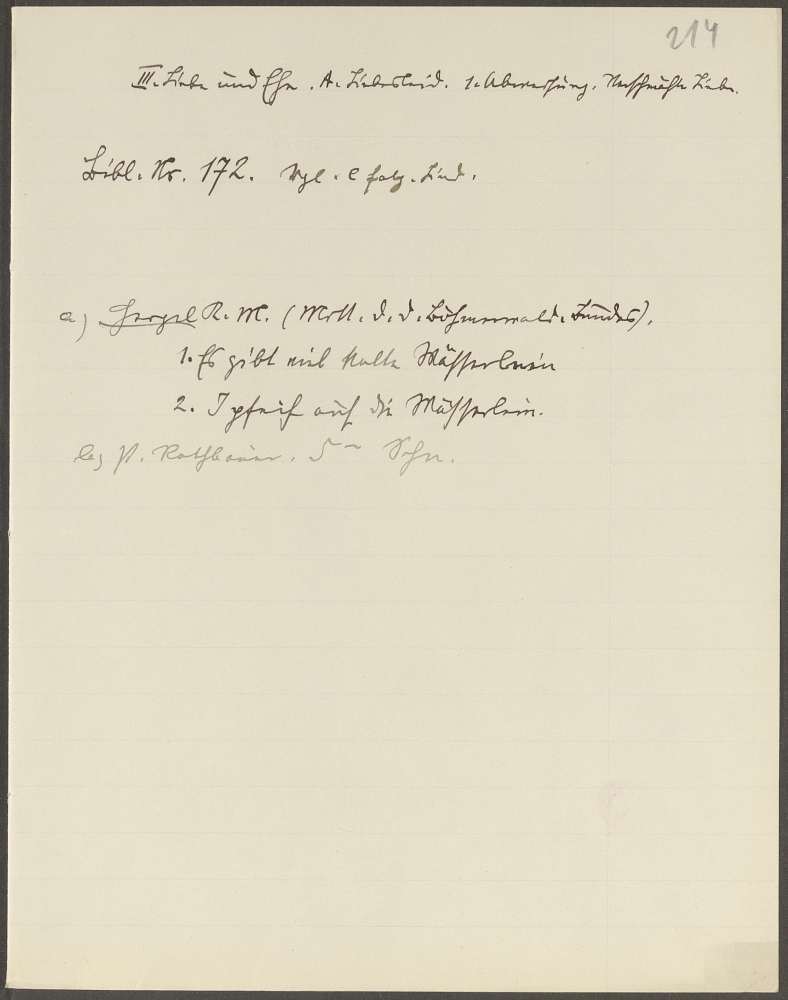 214
III. Liebe und Ehe. A. Liebesleid. 1. Abweisung. Verschmähte Liebe.
Bibl. Nr. 172. Vgl. e folg. Lied.
a) R. M. (Mitt. d. d. Böhmerwald-Bundes).
1. Es gibt viel kalte Wässerlein
2. I pfeif auf die Wässerlein.
b)